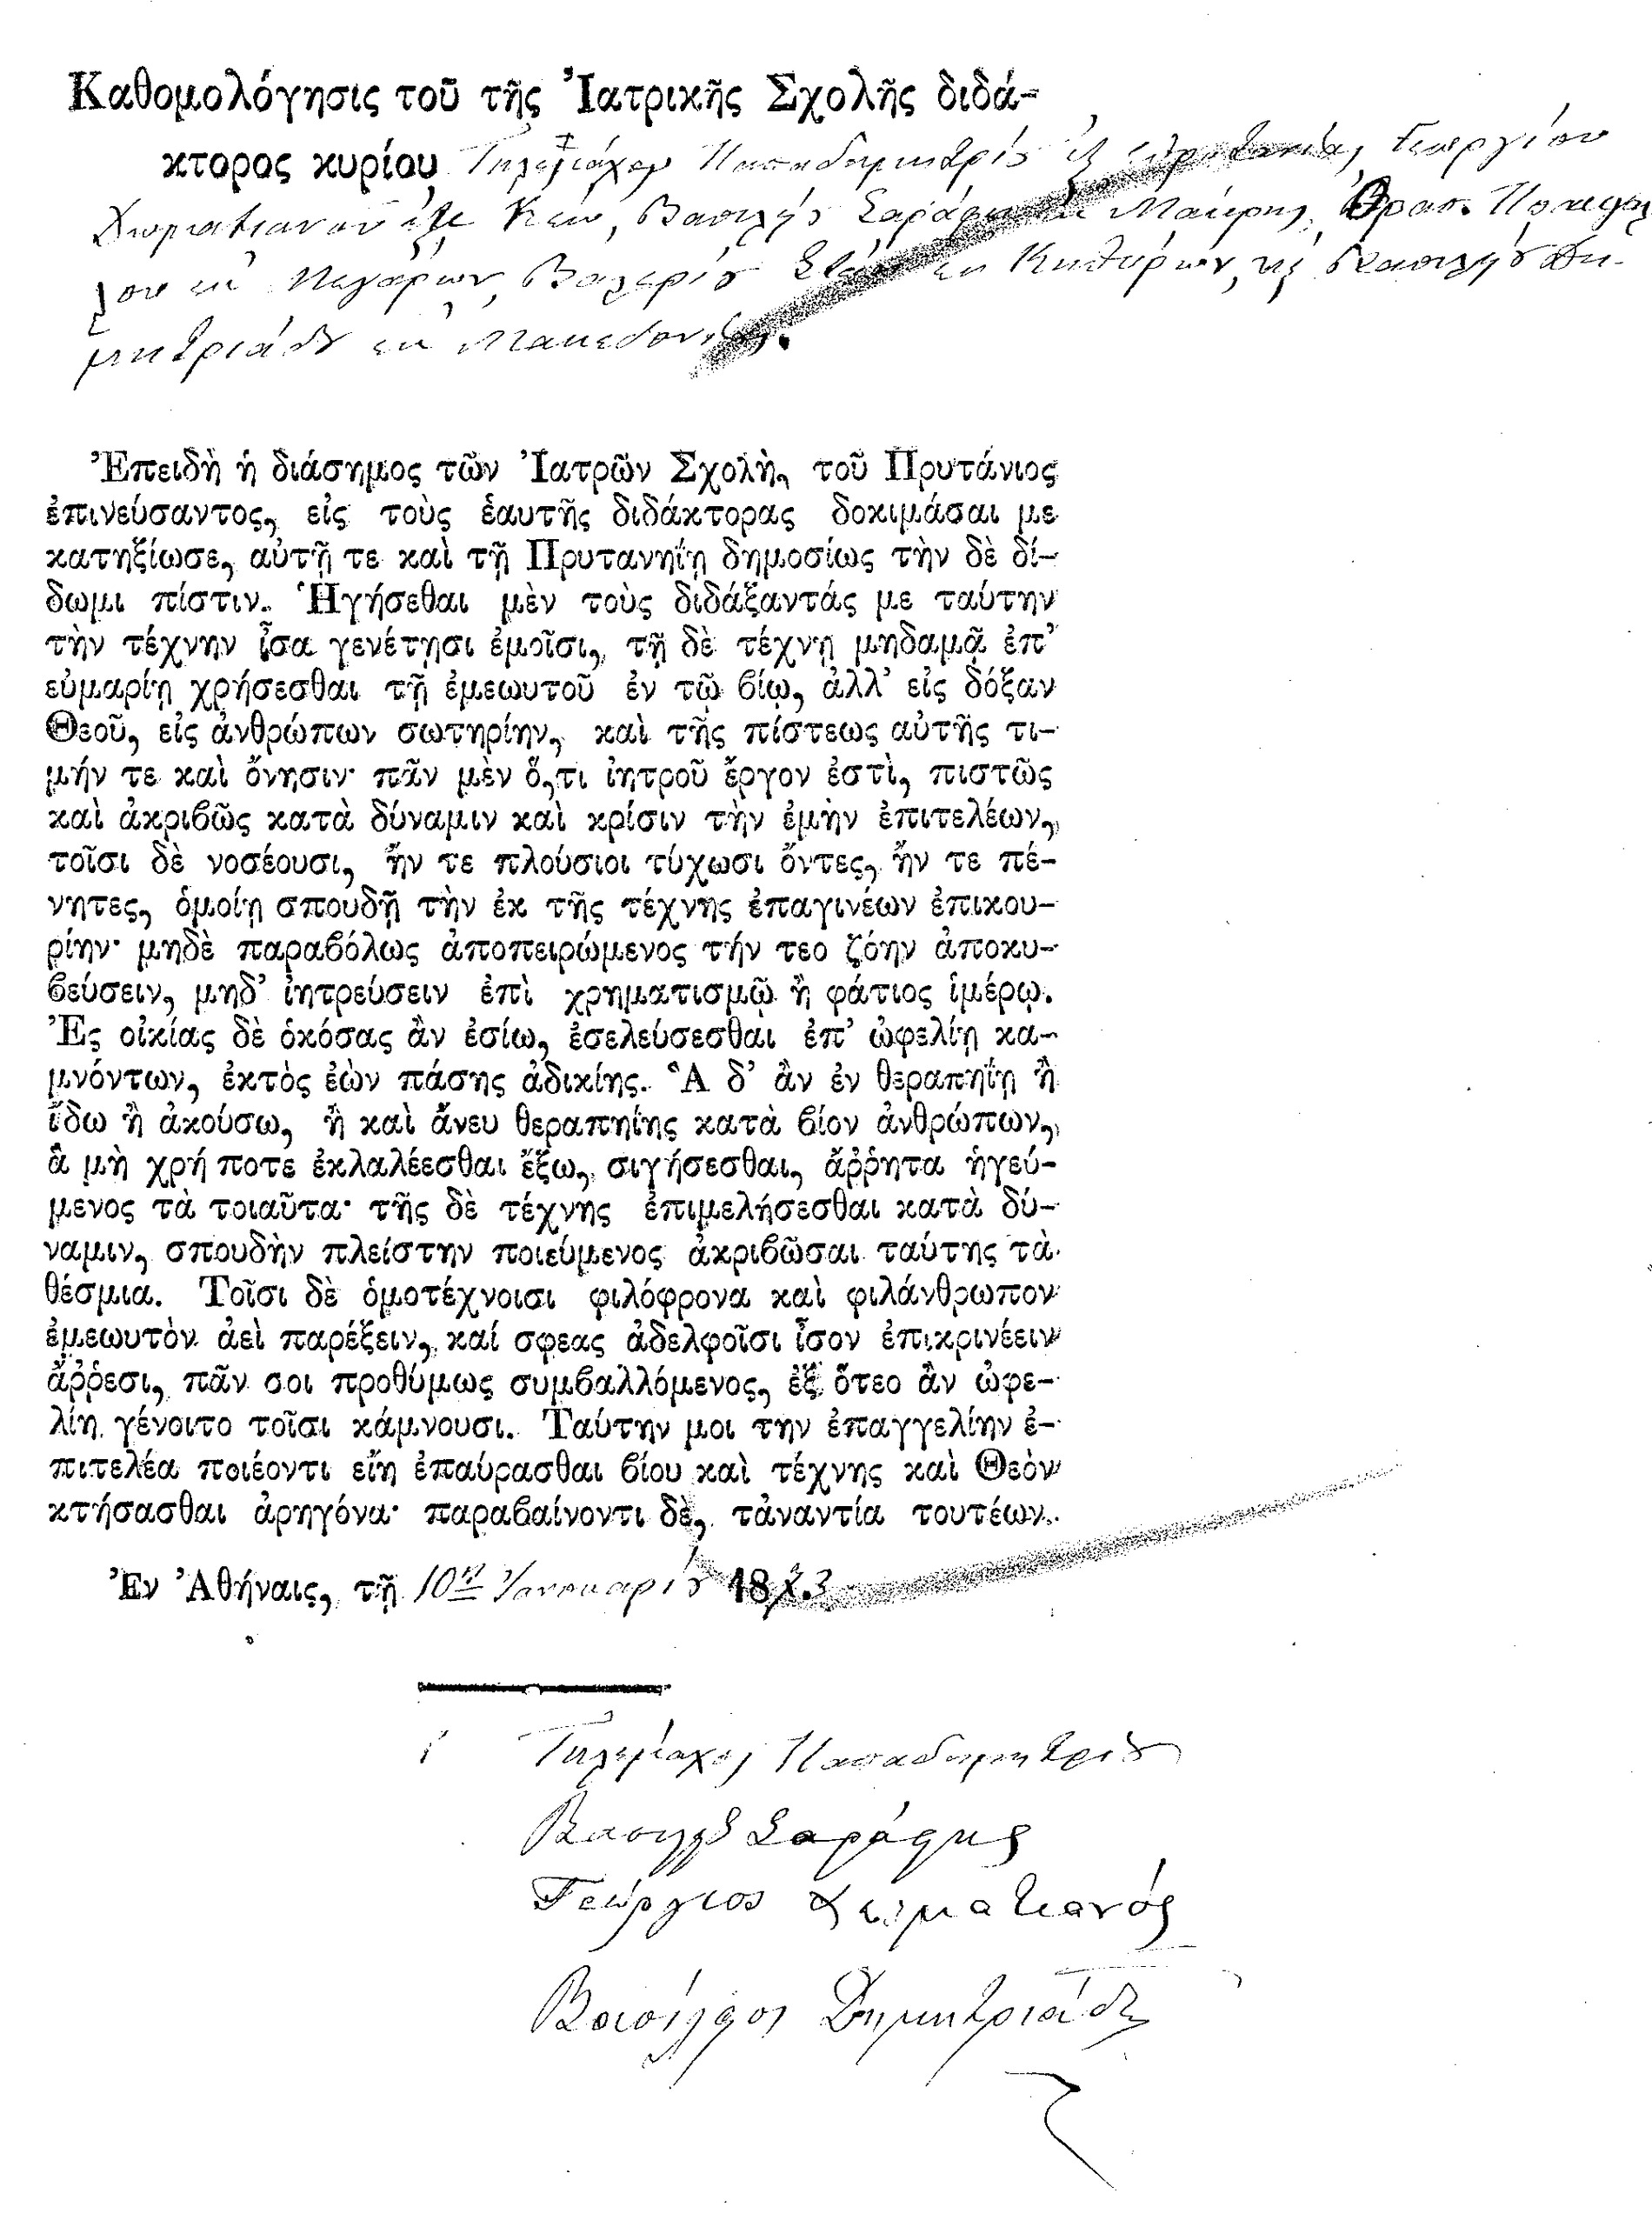 Καθομολόγησις τοῦ τῆς Ἰατρικῆς Σχολῆς διδά-
κτορος κυρίου Τηλεμάχου Παπαδημητρίου ἐξ Εὐρυτανίας, Γεωργίου
Χωματιανοῦ ἐκ Κέω, Βασιλείου Σαράφη ἐκ Μάκρης, Θρασ.
λου ἐκ Μεγάρων, Βαλερίου ἐκ Κυθήρων, Βασιλείου Δη-
μητριάδου ἐκ Μακεδονίας.
Ἐπειδὴ ἡ διάσημος τῶν Ἰατρῶν Σχολὴ, τοῦ Πρυτάνιος
ἐπινεύσαντος, εἰς τοὺς ἑαυτῆς διδάκτορας δοκιμάσαι με
κατηξίωσε, αὐτῇ τε καὶ τῇ Πρυτανηΐῃ δημοσίως τὴν δὲ δί-
δωμι πίστιν. Ἡγήσεθαι μὲν τοὺς διδάξαντάς με ταύτην
τὴν τέχνην ἶσα γενέτῃσι ἐμοῖσι, τῇ δὲ τέχνῃ μηδαμᾷ ἐπ’
εὐμαρίῃ χρήσεσθαι τῇ ἐμεωυτοῦ ἐν τῷ βίῳ, ἀλλ’ εἰς δόξαν
Θεοῦ, εἰς ἀνθρώπων σωτηρίην, καὶ τῆς πίστεως αὐτῆς τι-
μήν τε καὶ ὄνησιν· πᾶν μὲν ὅ,τι ἰητροῦ ἔργον ἐστὶ, πιστῶς
καὶ ἀκριβῶς κατὰ δύναμιν καὶ κρίσιν τὴν ἐμὴν ἐπιτελέων,
τοῖσι δὲ νοσέουσι, ἤν τε πλούσιοι τύχωσι ὄντες, ἤν τε πέ-
νητες, ὁμοίῃ σπουδῇ τὴν ἐκ τῆς τέχνης ἐπαγινέων ἐπικου-
ρίην· μηδὲ παραβόλως ἀποπειρώμενος τήν τεο ζόην ἀποκυ-
βεύσειν, μηδ’ ἰητρεύσειν ἐπὶ χρηματισμῷ ἢ φάτιος ἱμέρῳ.
Ἐς οἰκίας δὲ ὁκόσας ἂν ἐσίω, ἐσελεύσεσθαι ἐπ’ ὠφελίῃ κα-
μνόντων, ἐκτὸς ἐὼν πάσης ἀδικίης. Ἃ δ’ ἂν ἐν θεραπηΐῃ ἢ
ἴδω ἢ ἀκούσω, ἢ καὶ ἄνευ θεραπηΐης κατὰ βίον ἀνθρώπων,
ἃ μὴ χρή ποτε ἐκλαλέεσθαι ἔξω, σιγήσεσθαι, ἄῤῥητα ἡγεύ-
μενος τὰ τοιαῦτα· τῆς δὲ τέχνης ἐπιμελήσεσθαι κατὰ δύ-
ναμιν, σπουδὴν πλείστην ποιεύμενος ἀκριβῶσαι ταύτης τὰ
θέσμια. Τοῖσι δὲ ὁμοτέχνοισι φιλόφρονα καὶ φιλάνθρωπον
ἐμεωυτὸν ἀεὶ παρέξειν, καί σφεας ἀδελφοῖσι ἶσον ἐπικρινέειν
ἄῤῥεσι, πᾶν σοι προθύμως συμβαλλόμενος, ἐξ ὅτεο ἂν ὠφε-
λίη γένοιτο τοῖσι κάμνουσι. Ταύτην μοι την ἐπαγγελίην ἐ-
πιτελέα ποιέοντι εἴη ἐπαύρασθαι βίου καὶ τέχνης καὶ Θεὸν
κτήσασθαι ἀρηγόνα· παραβαίνοντι δὲ, τἀναντία τουτέων.
Ἐν Ἀθήναις, τῇ 10ῃ Ἰανουαρίου 18
Τηλέμαχος Παπαδημητρίου
Βασίλειος Σαράφης
Γεώργιος Χωματιανός
Βασίλειος Δημητριάδης